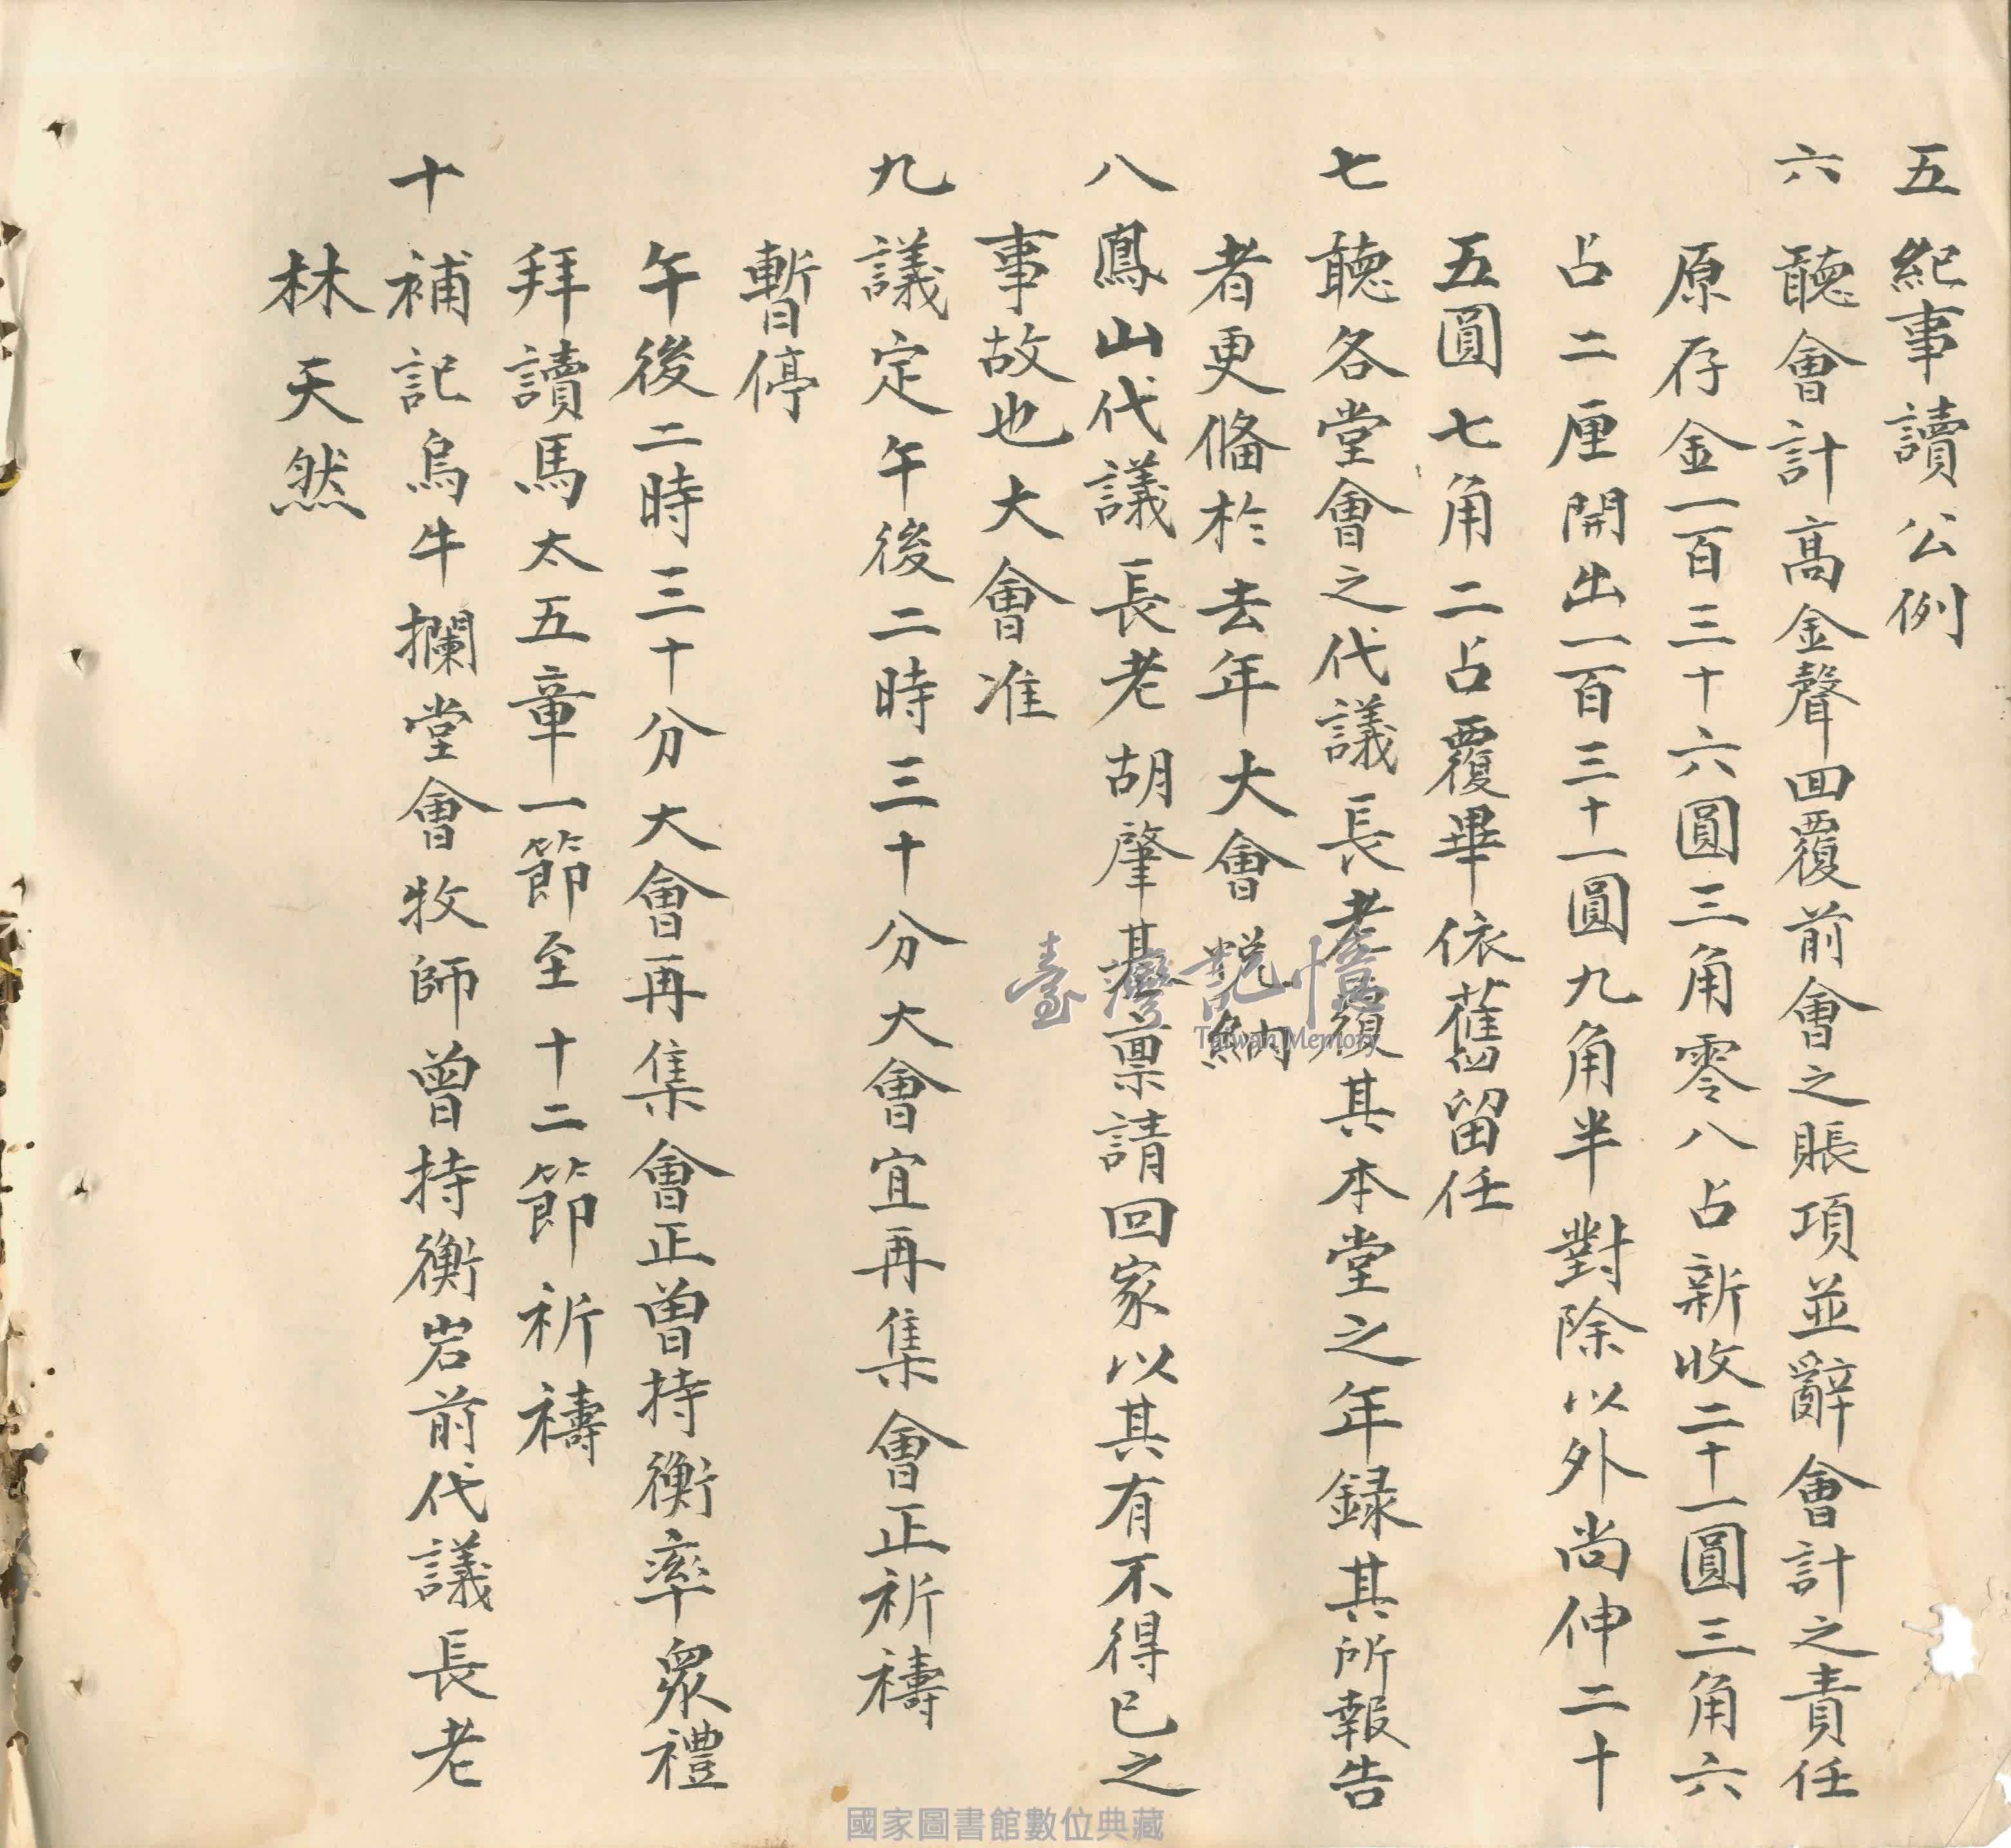 五 紀事讀公例
六 聽會計高金聲囬覆前會之賬項並辭會計之責任
原存金一百三十六圓三角零八占新收二十一圓三角六
占二厘開出一百三十一圓九角半對除以外尚伸二十
五圓七角二占覆畢依舊留任
七 聽各堂會之代議長老覆其本堂之年録其所報告
者更俻於去年大會説納
八 鳳山代議長老胡肇基禀請回家以其有不得已之
事故也大會准
九 議定午後二時三十分大會宜再集會正祈禱
暫停
午後二時三十分大會再集會正曾持衡率眾禮
拜讀馬太五章一節至十二節祈禱
十 補記烏牛攔堂會牧師曾持衡岩前代議長老
林天然
臺灣記憶
Taiwan Memory
國家圖書館數位典藏